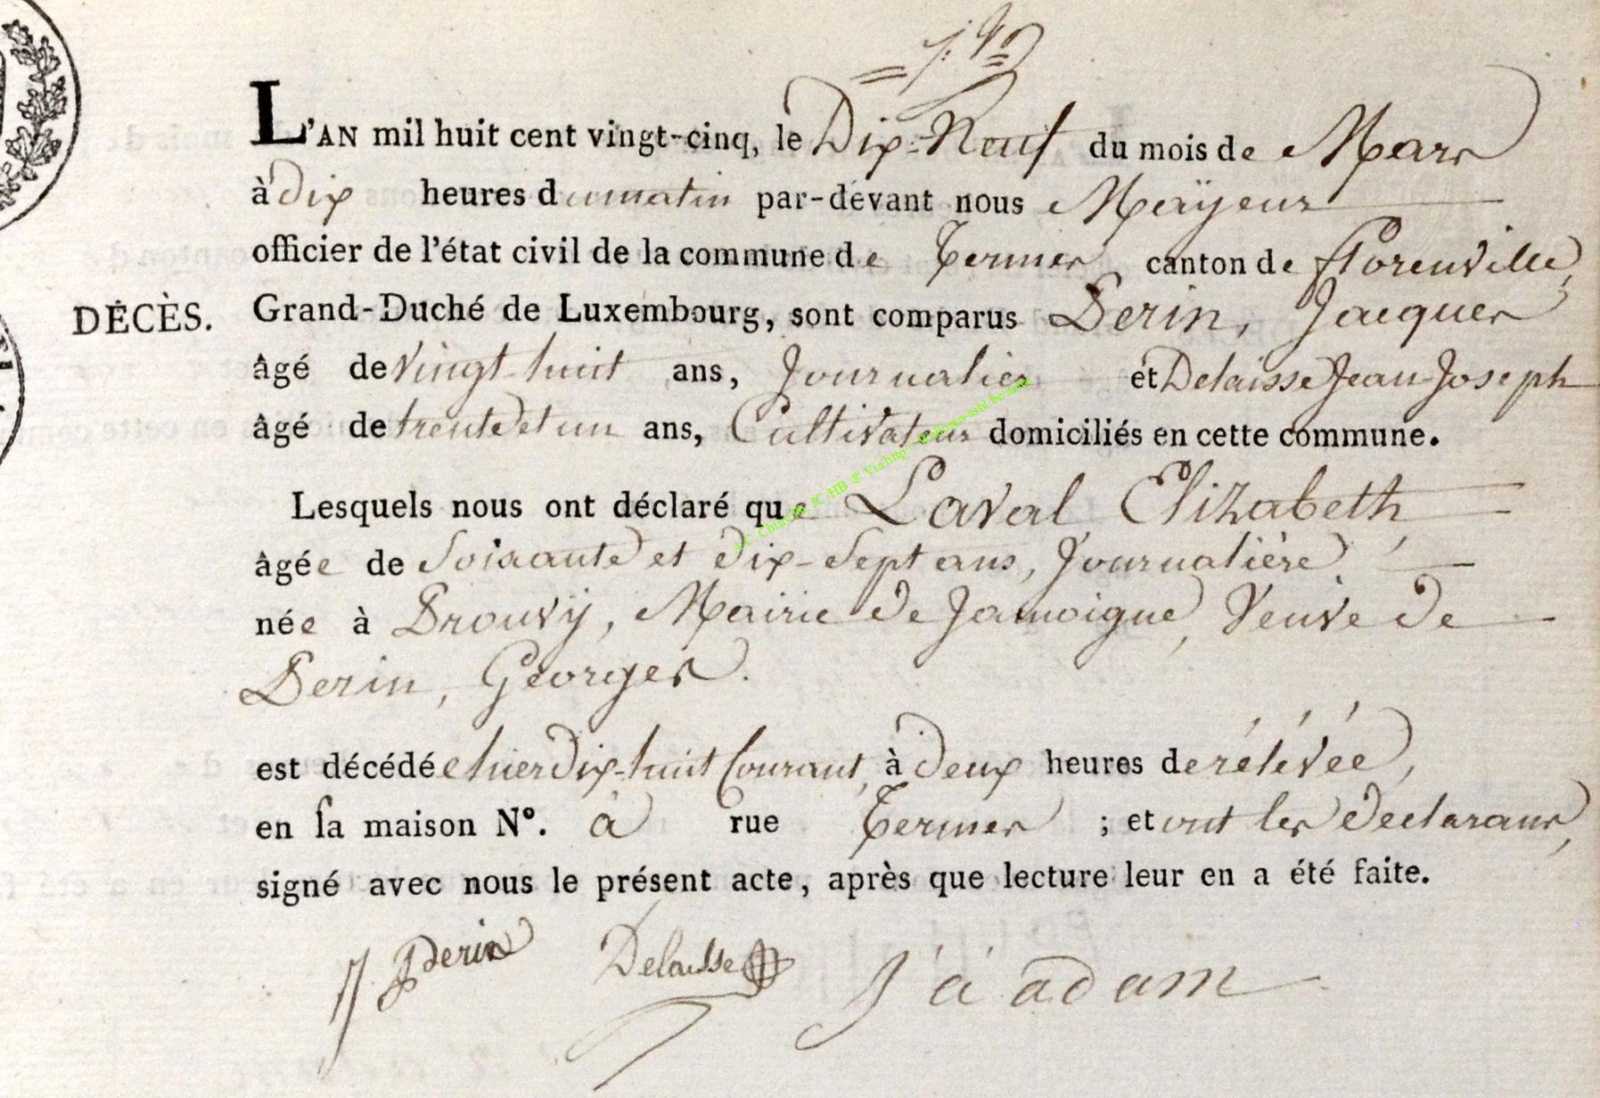 L'AN mil huit cent vingt-cinq, le Dix-Neuf du mois de Mars
à dix heures du matin par-devant nous Mayeur
officier de l'état civil de la commune de Termes canton de florenville,
DÉCÈS. Grand-Duché de Luxembourg, sont comparus Perin, Jacques
âgé de vingt-huit ans, Journalier et Delaisse Jean-Joseph
âgé de trente et un ans, Cultivateur domiciliés en cette commune.
Lesquels nous ont déclaré que Laval Elizabeth
âgée de Soixante et dix-Sept ans, Journalière,
née à Prouvÿ, Mairie de Jamoigne, Veuve de
Perin, Georges.
est décédée hier dix-huit Courant, à deux heures de rélévée,
en sa maison N°. à rue Termes ; et ont les déclarans,
signé avec nous le présent acte, après que lecture leur en a été faite.
J Perin Delaisse J a adam